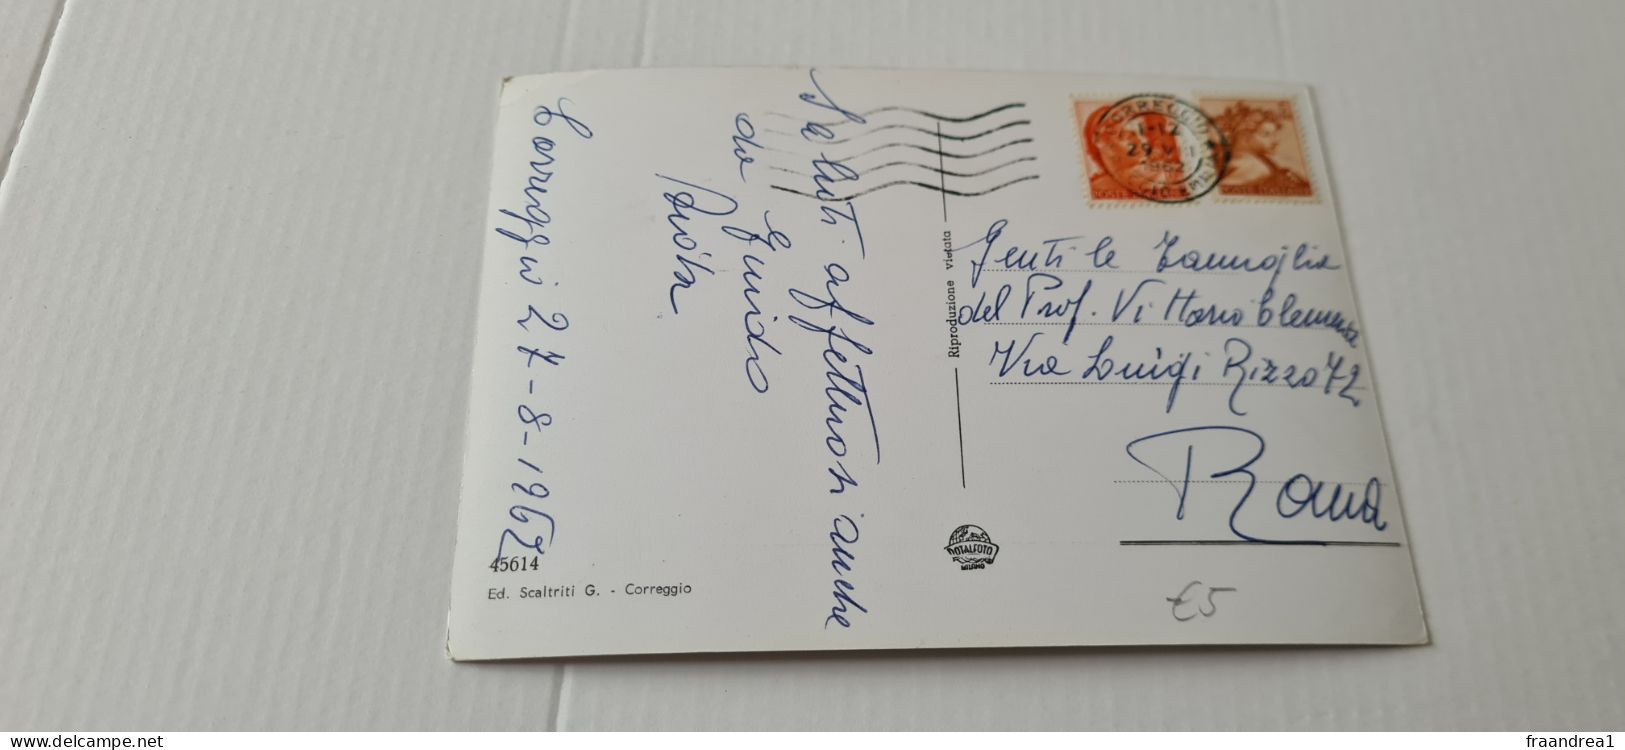 Correggio 27-8-1962
Saluti affettuosi anche
da Guido
45614
Ed. Scaltriti G. - Correggio
Riproduzione vietata
CORREGGIO
29 VIII
1962
POSTE ITALIANE
Gentile Famiglia
del Prof. Vittorio Clemente
Via Luigi Rizzo 72
Roma
ROTALFOTO
MILANO
€5
fraandrea1
www.delcampe.net